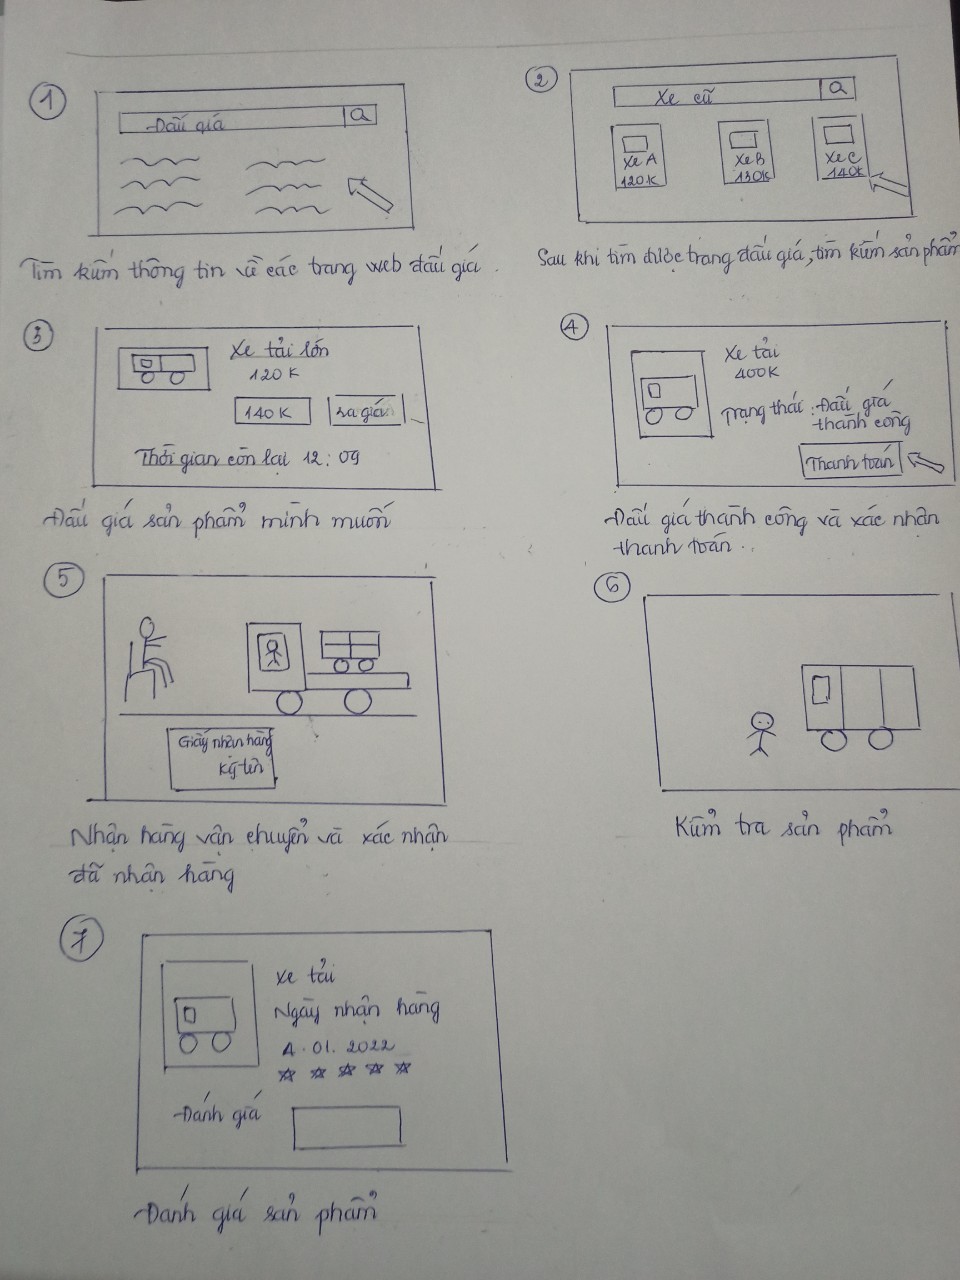 1
Đấu giá
Tìm kiếm thông tin về các trang web đấu giá.
2
Xe cũ
Xe A
120K
Xe B
130K
Xe C
140K
Sau khi tìm được trang đấu giá, tìm kiếm sản phẩm
3
Xe tải lớn
120K
140K
ra giá
Thời gian còn lại 12:09
Đấu giá sản phẩm mình muốn
4
Xe tải
400K
Trạng thái: Đấu giá
thành công
Thanh toán
Đấu giá thành công và xác nhận
thanh toán.
5
Giấy nhận hàng
Ký tên
Nhận hàng vận chuyển và xác nhận
đã nhận hàng
6
Kiểm tra sản phẩm
7
Xe tải
Ngày nhận hàng
4.01.2022
Đánh giá
Đánh giá sản phẩm